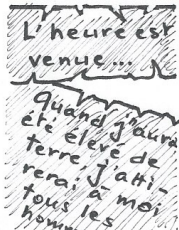 L'heure est
venue...
Quand j'aurai
été élevé de
terre j'atti-
rerai à moi
tous les